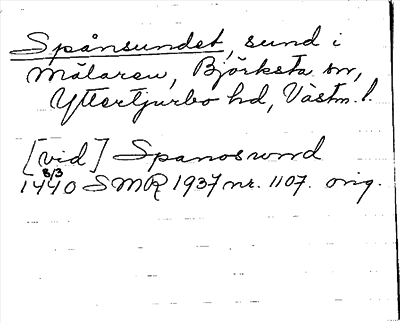 Spånsundet, sund i
Mälaren, Björksta sn,
Yttertjurbo hd, Västm. l.
[vid] Spanosund
8/3
1440 SMR 1937 nr. 1107. orig.